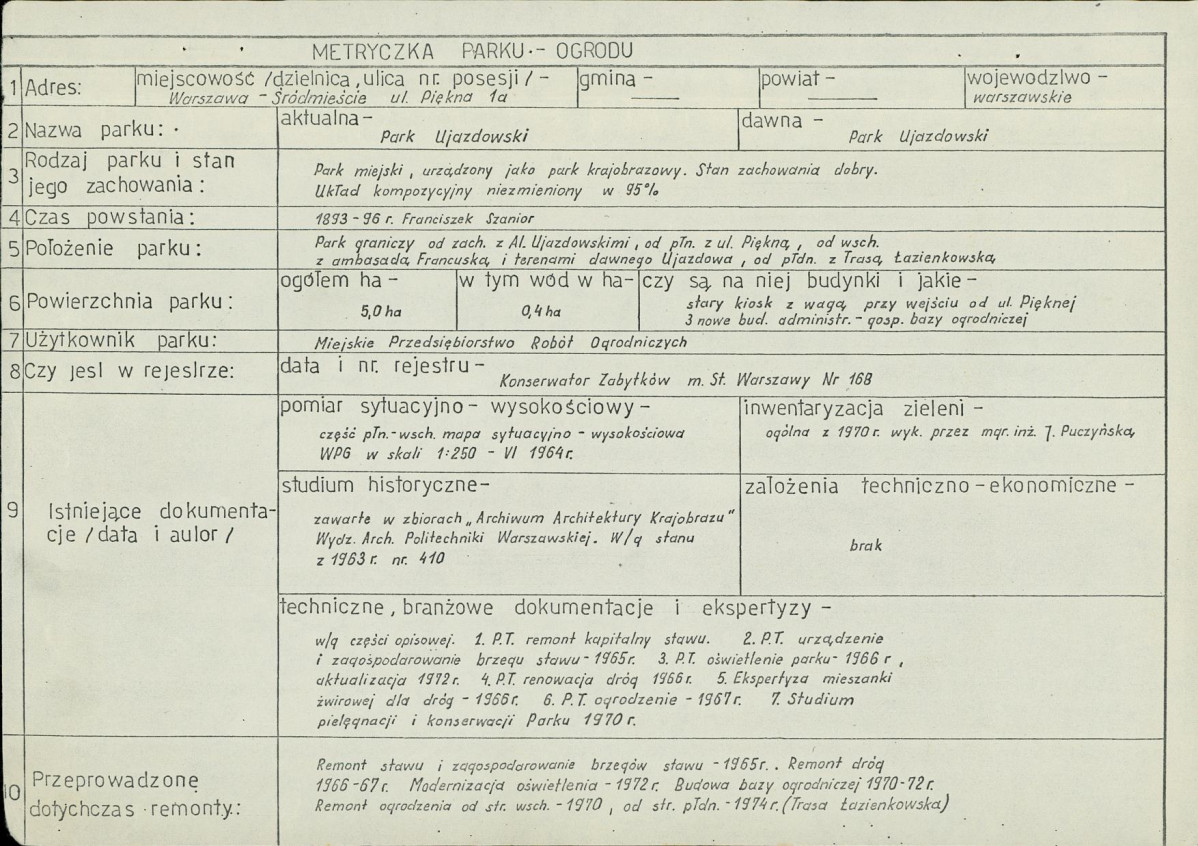 METRYCZKA PARKU - OGRODU
1 Adres: miejscowość /dzielnica, ulica nr. posesji / - gmina - powiat - wojewodztwo -
Warszawa - Śródmieście ul. Piękna 1a warszawskie
2 Nazwa parku: aktualna - dawna -
Park Ujazdowski Park Ujazdowski
3 Rodzaj parku i stan
jego zachowania:
Park miejski, urządzony jako park krajobrazowy. Stan zachowania dobry.
Układ kompozycyjny niezmieniony w 95%
4 Czas powstania: 1893-96 r. Franciszek Szanior
5 Położenie parku: Park graniczy od zach. z Al. Ujazdowskimi, od płn. z ul. Piękną, od wsch.
z ambasadą Francuską i terenami dawnego Ujazdowa, od płdn. z Trasą Łazienkowską
6 Powierzchnia parku: ogółem ha - w tym wód w ha - czy są na niej budynki i jakie -
5,0 ha 0,4 ha stary kiosk z wagą przy wejściu od ul. Pięknej
3 nowe bud. administr. - gosp. bazy ogrodniczej
7 Użytkownik parku: Miejskie Przedsiębiorstwo Robót Ogrodniczych
8 Czy jest w rejestrze: data i nr. rejestru -
Konserwator Zabytków m. St. Warszawy Nr 168
9 Istniejące dokumenta-
cje / data i autor /
pomiar sytuacyjno - wysokościowy -
część płn.-wsch. mapa sytuacyjno - wysokościowa
WPG w skali 1:250 - VI 1964r.
inwentaryzacja zieleni -
ogólna z 1970 r. wyk. przez mgr. inż. J. Puczyńską
studium historyczne -
zawarte w zbiorach „Archiwum Architektury Krajobrazu"
Wydz. Arch. Politechniki Warszawskiej. W/g stanu
z 1963 r. nr. 410
założenia techniczno - ekonomiczne -
brak
techniczne, branżowe dokumentacje i ekspertyzy -
w/g części opisowej. 1. P.T. remont kapitalny stawu. 2. P.T. urządzenie
i zagospodarowanie brzegu stawu - 1965r. 3. P.T. oświetlenie parku - 1966 r,
aktualizacja 1972r. 4. P.T. renowacja dróg 1966r. 5. Ekspertyza mieszanki
żwirowej dla dróg - 1966r. 6. P.T. ogrodzenie - 1967r. 7. Studium
pielęgnacji i konserwacji Parku 1970 r.
10 Przeprowadzone
dotychczas remonty:
Remont stawu i zagospodarowanie brzegów stawu - 1965r.. Remont dróg
1966-67r. Modernizacja oświetlenia - 1972r. Budowa bazy ogrodniczej 1970-72r.
Remont ogrodzenia od str. wsch. - 1970, od str. płdn. - 1974r. (Trasa Łazienkowska)